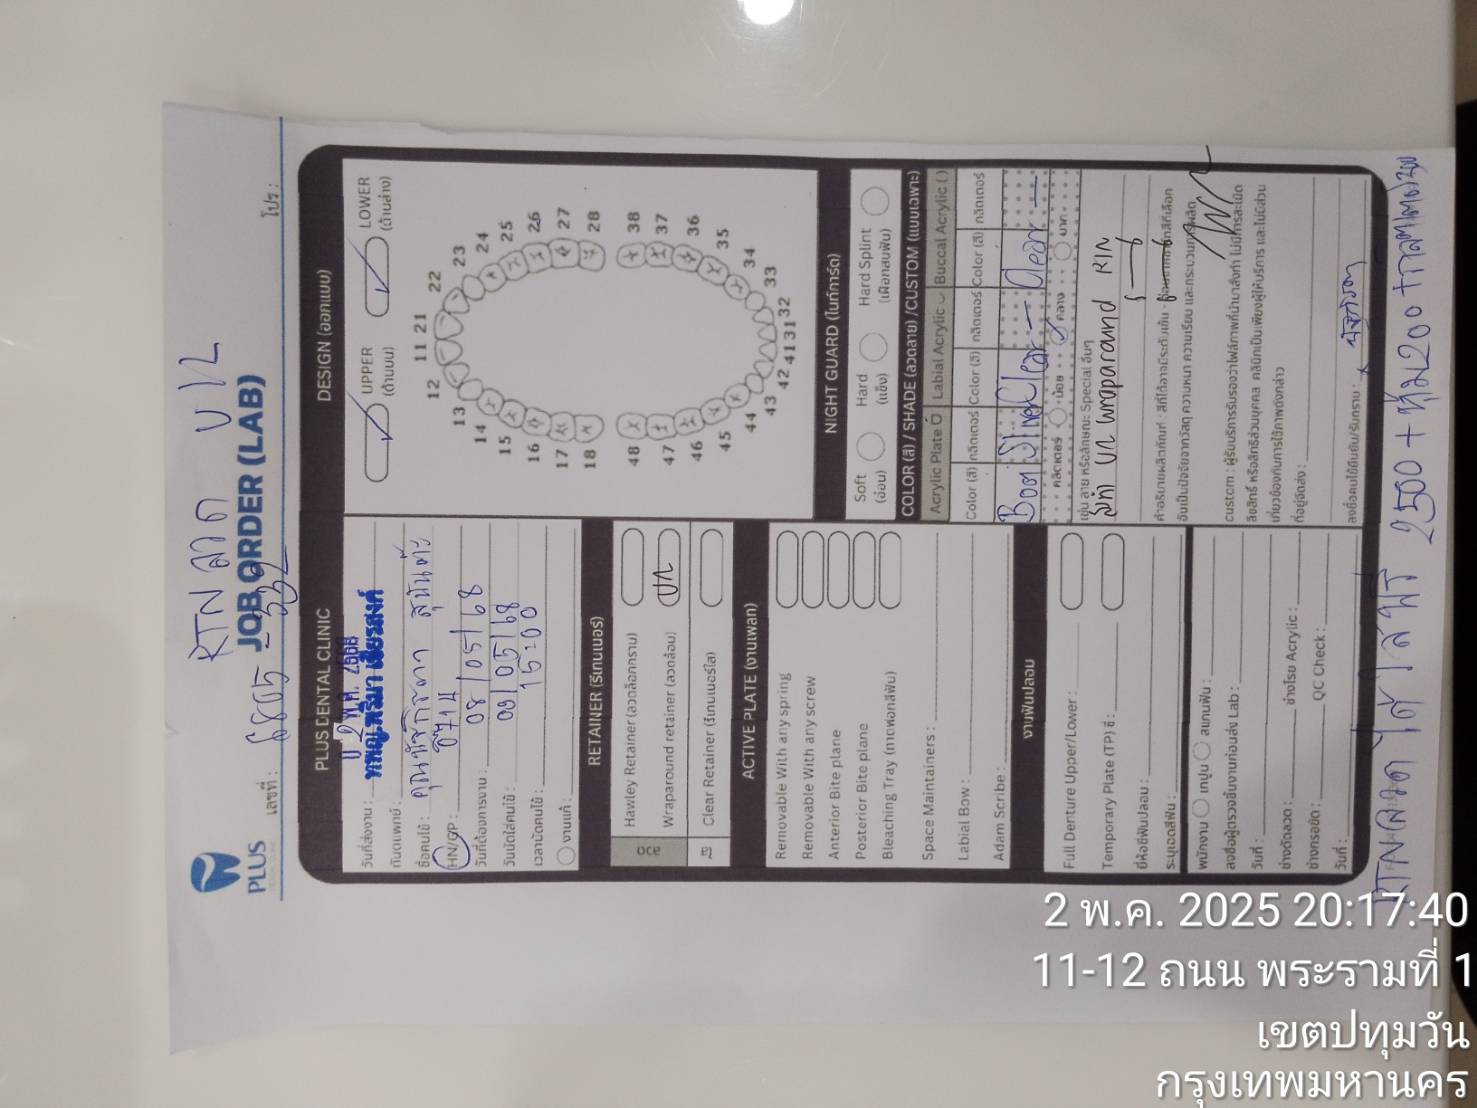 RTN ลวด บ/ล
PLUS
DENTAL CLINIC
เลขที่ : 6805 - 332
โปร :
JOB ORDER (LAB)
PLUS DENTAL CLINIC
วันที่ส่งงาน : 0 2 พ.ค. 2568
ทันตแพทย์ :
ชื่อคนไข้ :
HN/GP :
วันที่ต้องการงาน : 08/05/68
วันนัดใส่คนไข้ : 09/05/68
เวลานัดคนไข้ : 15:00
งานแก้ :
RETAINER (รีเทนเนอร์)
ลวด
Hawley Retainer (ลวดล็อกกราม)
Wraparound retainer (ลวดล้อม) บ/ล
ใส
Clear Retainer (รีเทนเนอร์ใส)
ACTIVE PLATE (งานเพลท)
Removable With any spring
Removable With any screw
Anterior Bite plane
Posterior Bite plane
Bleaching Tray (ถาดฟอกสีฟัน)
Space Maintainers :
Labial Bow :
Adam Scribe :
งานฟันปลอม
Full Denture Upper/Lower :
Temporary Plate (TP) ซี่ :
ยี่ห้อซี่ฟันปลอม :
ระบุเฉดสีฟัน :
พนักงาน เทปูน สแกนฟัน :
ลงชื่อผู้ตรวจชิ้นงานก่อนส่ง Lab :
วันที่ :
ช่างดัดลวด :
ช่างโรย Acrylic :
ช่างกรอขัด :
QC Check :
วันที่ :
DESIGN (ออกแบบ)
UPPER
(ด้านบน)
LOWER
(ด้านล่าง)
11 21
12 22
13 23
14 24
15 25
16 26
17 27
18 28
48 38
47 37
46 36
45 35
44 34
43 33
42 41 31 32
NIGHT GUARD (ไนท์การ์ด)
Soft
(อ่อน)
Hard
(แข็ง)
Hard Splint
(เฝือกสบฟัน)
COLOR (สี) / SHADE (ลวดลาย) /CUSTOM (แบบเฉพาะ)
Acrylic Plate Labial Acrylic Buccal Acrylic ( )
Color (สี) กลิตเตอร์ Color (สี) กลิตเตอร์ Color (สี) กลิตเตอร์
Clear — Clear —
กลิตเตอร์ น้อย กลาง มาก
เช่น ลาย หรือลักษณะ Special อื่นๆ
wraparound RTN
6—6
คำอธิบายผลิตภัณฑ์ : สีที่ได้อาจมีระดับเข้ม
อันเป็นปัจจัยจากวัสดุ ความหนา ความเรียบ และกระบวนการผลิต
custom : ผู้รับบริการรับรองว่าไฟล์ภาพที่นำมาสั่งทำ ไม่มีการละเมิด
ลิขสิทธิ์ หรือสิทธิส่วนบุคคล คลินิกเป็นเพียงผู้ให้บริการ และไม่มีส่วน
เกี่ยวข้องกับการใช้ภาพดังกล่าว
ที่อยู่จัดส่ง :
ลงชื่อคนไข้ยืนยัน/รับทราบ :
RTN ลวด 2500 + 200
2 พ.ค. 2025 20:17:40
11-12 ถนน พระรามที่ 1
เขตปทุมวัน
กรุงเทพมหานคร